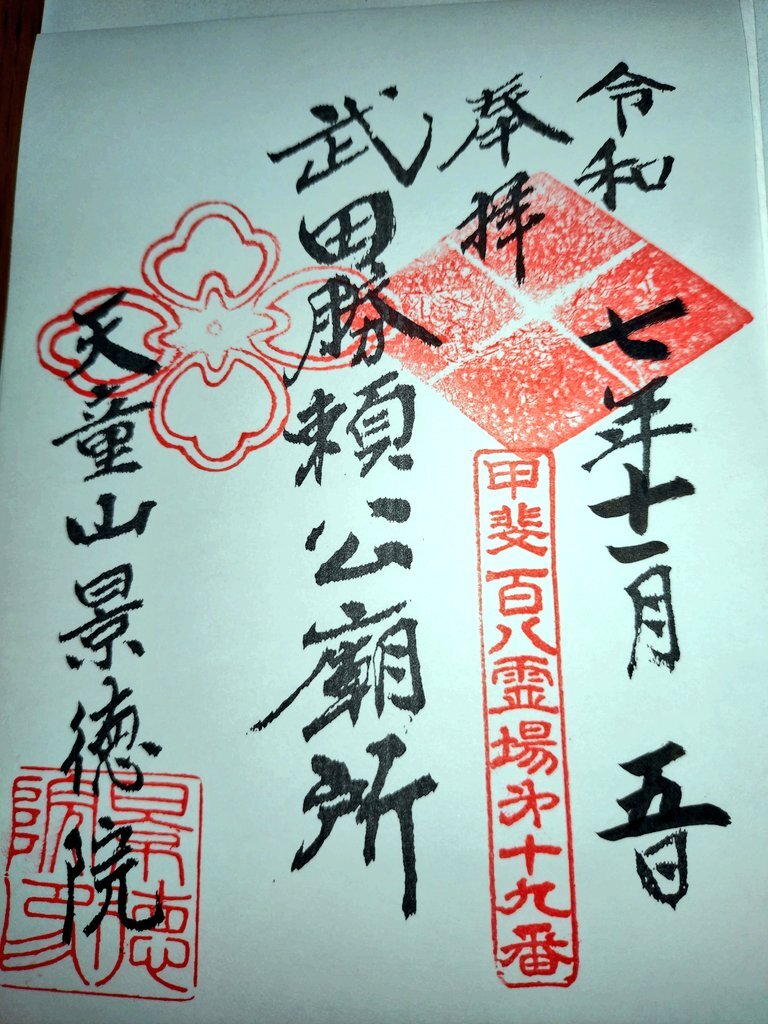 令和七年十一月五日
奉拝
甲斐百八霊場第十九番
武田勝頼公廟所
天童山景徳院
景徳院印